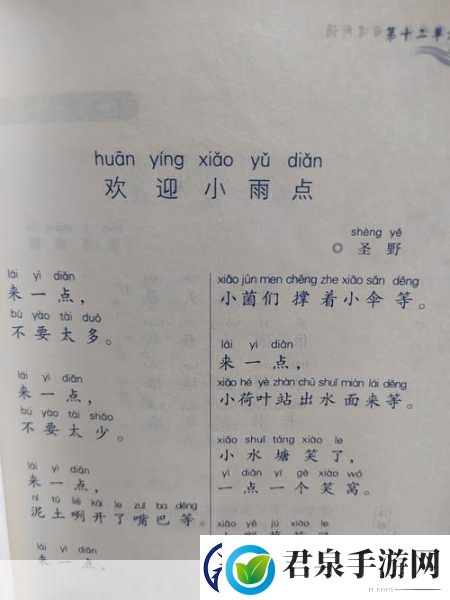 第十二单
huān yíng xiǎo yǔ diǎn
欢迎小雨点
shèng yě
◎ 圣野
lái yì diǎn
来一点，
bú yào tài duō
不要太多。
lái yì diǎn
来一点，
bú yào tài shǎo
不要太少。
lái yì diǎn
来一点，
ní tǔ liě kāi le zuǐ ba děng
泥土咧开了嘴巴等。
lái yì diǎn
来一点，
xiǎo jūn men chēng zhe xiǎo sǎn děng
小菌们撑着小伞等。
lái yì diǎn
来一点，
xiǎo hé yè zhàn chū shuǐ miàn lái děng
小荷叶站出水面来等。
xiǎo shuǐ táng xiào le
小水塘笑了，
yì diǎn yí gè xiào wō
一点一个笑窝。
xiǎo yě jú xiào le
君泉手游网